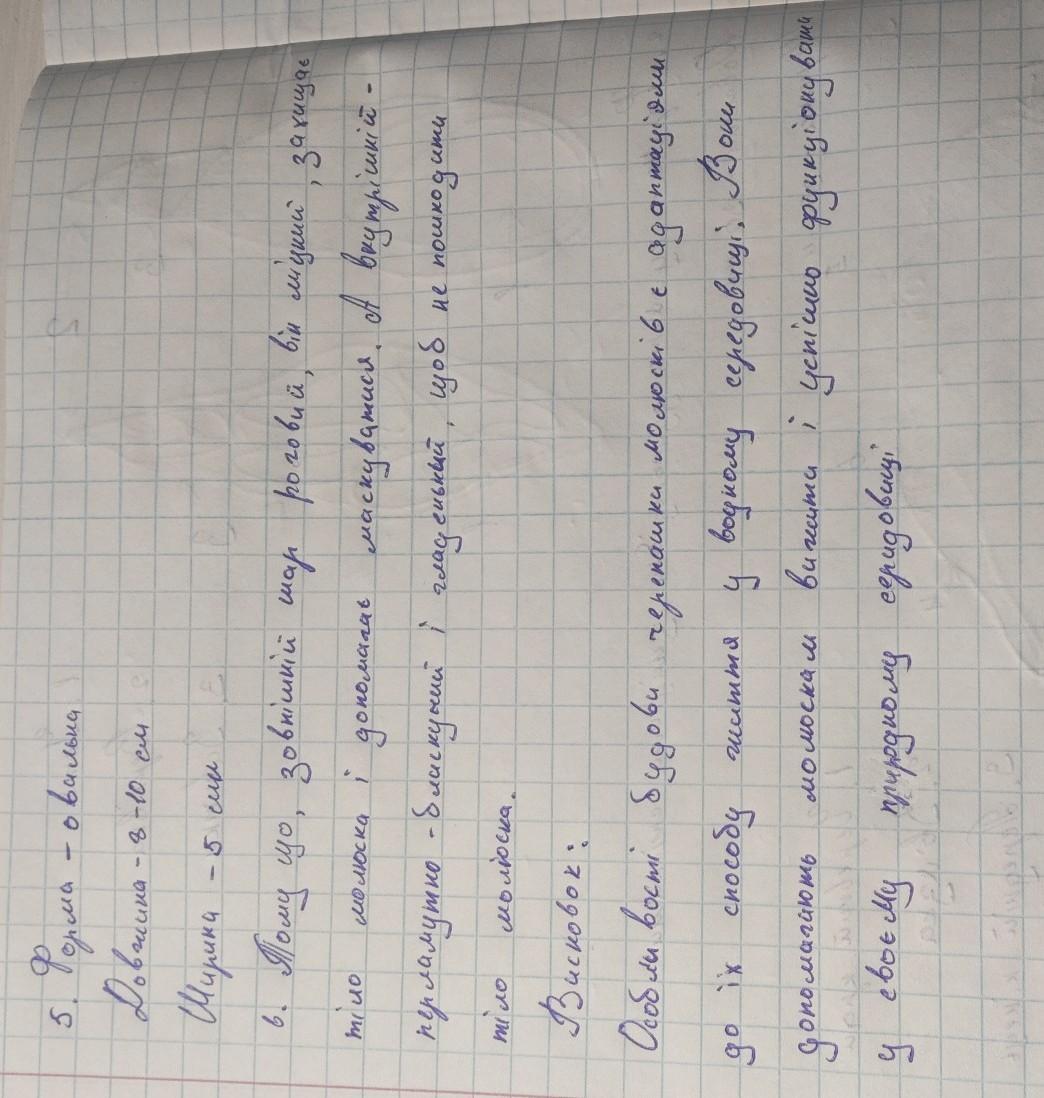 5. Форма - овальна
Довжина - 8-10 см
Ширина - 5 см
в. Тому що, зовнішній шар роговий, він міцний, захищає
тіло молюска і допомагає маскуватися. А внутрішній -
перламутно - блискучий і гладенький, щоб не пошкодити
тіло молюска.
Висковок:
Особливості будови черепашки молюсків є адаптаціями
до їх способу життя у водному середовищі. Вони
допомагають момоскам вижити і успішно функціонувати
у своєму природному серидовищі